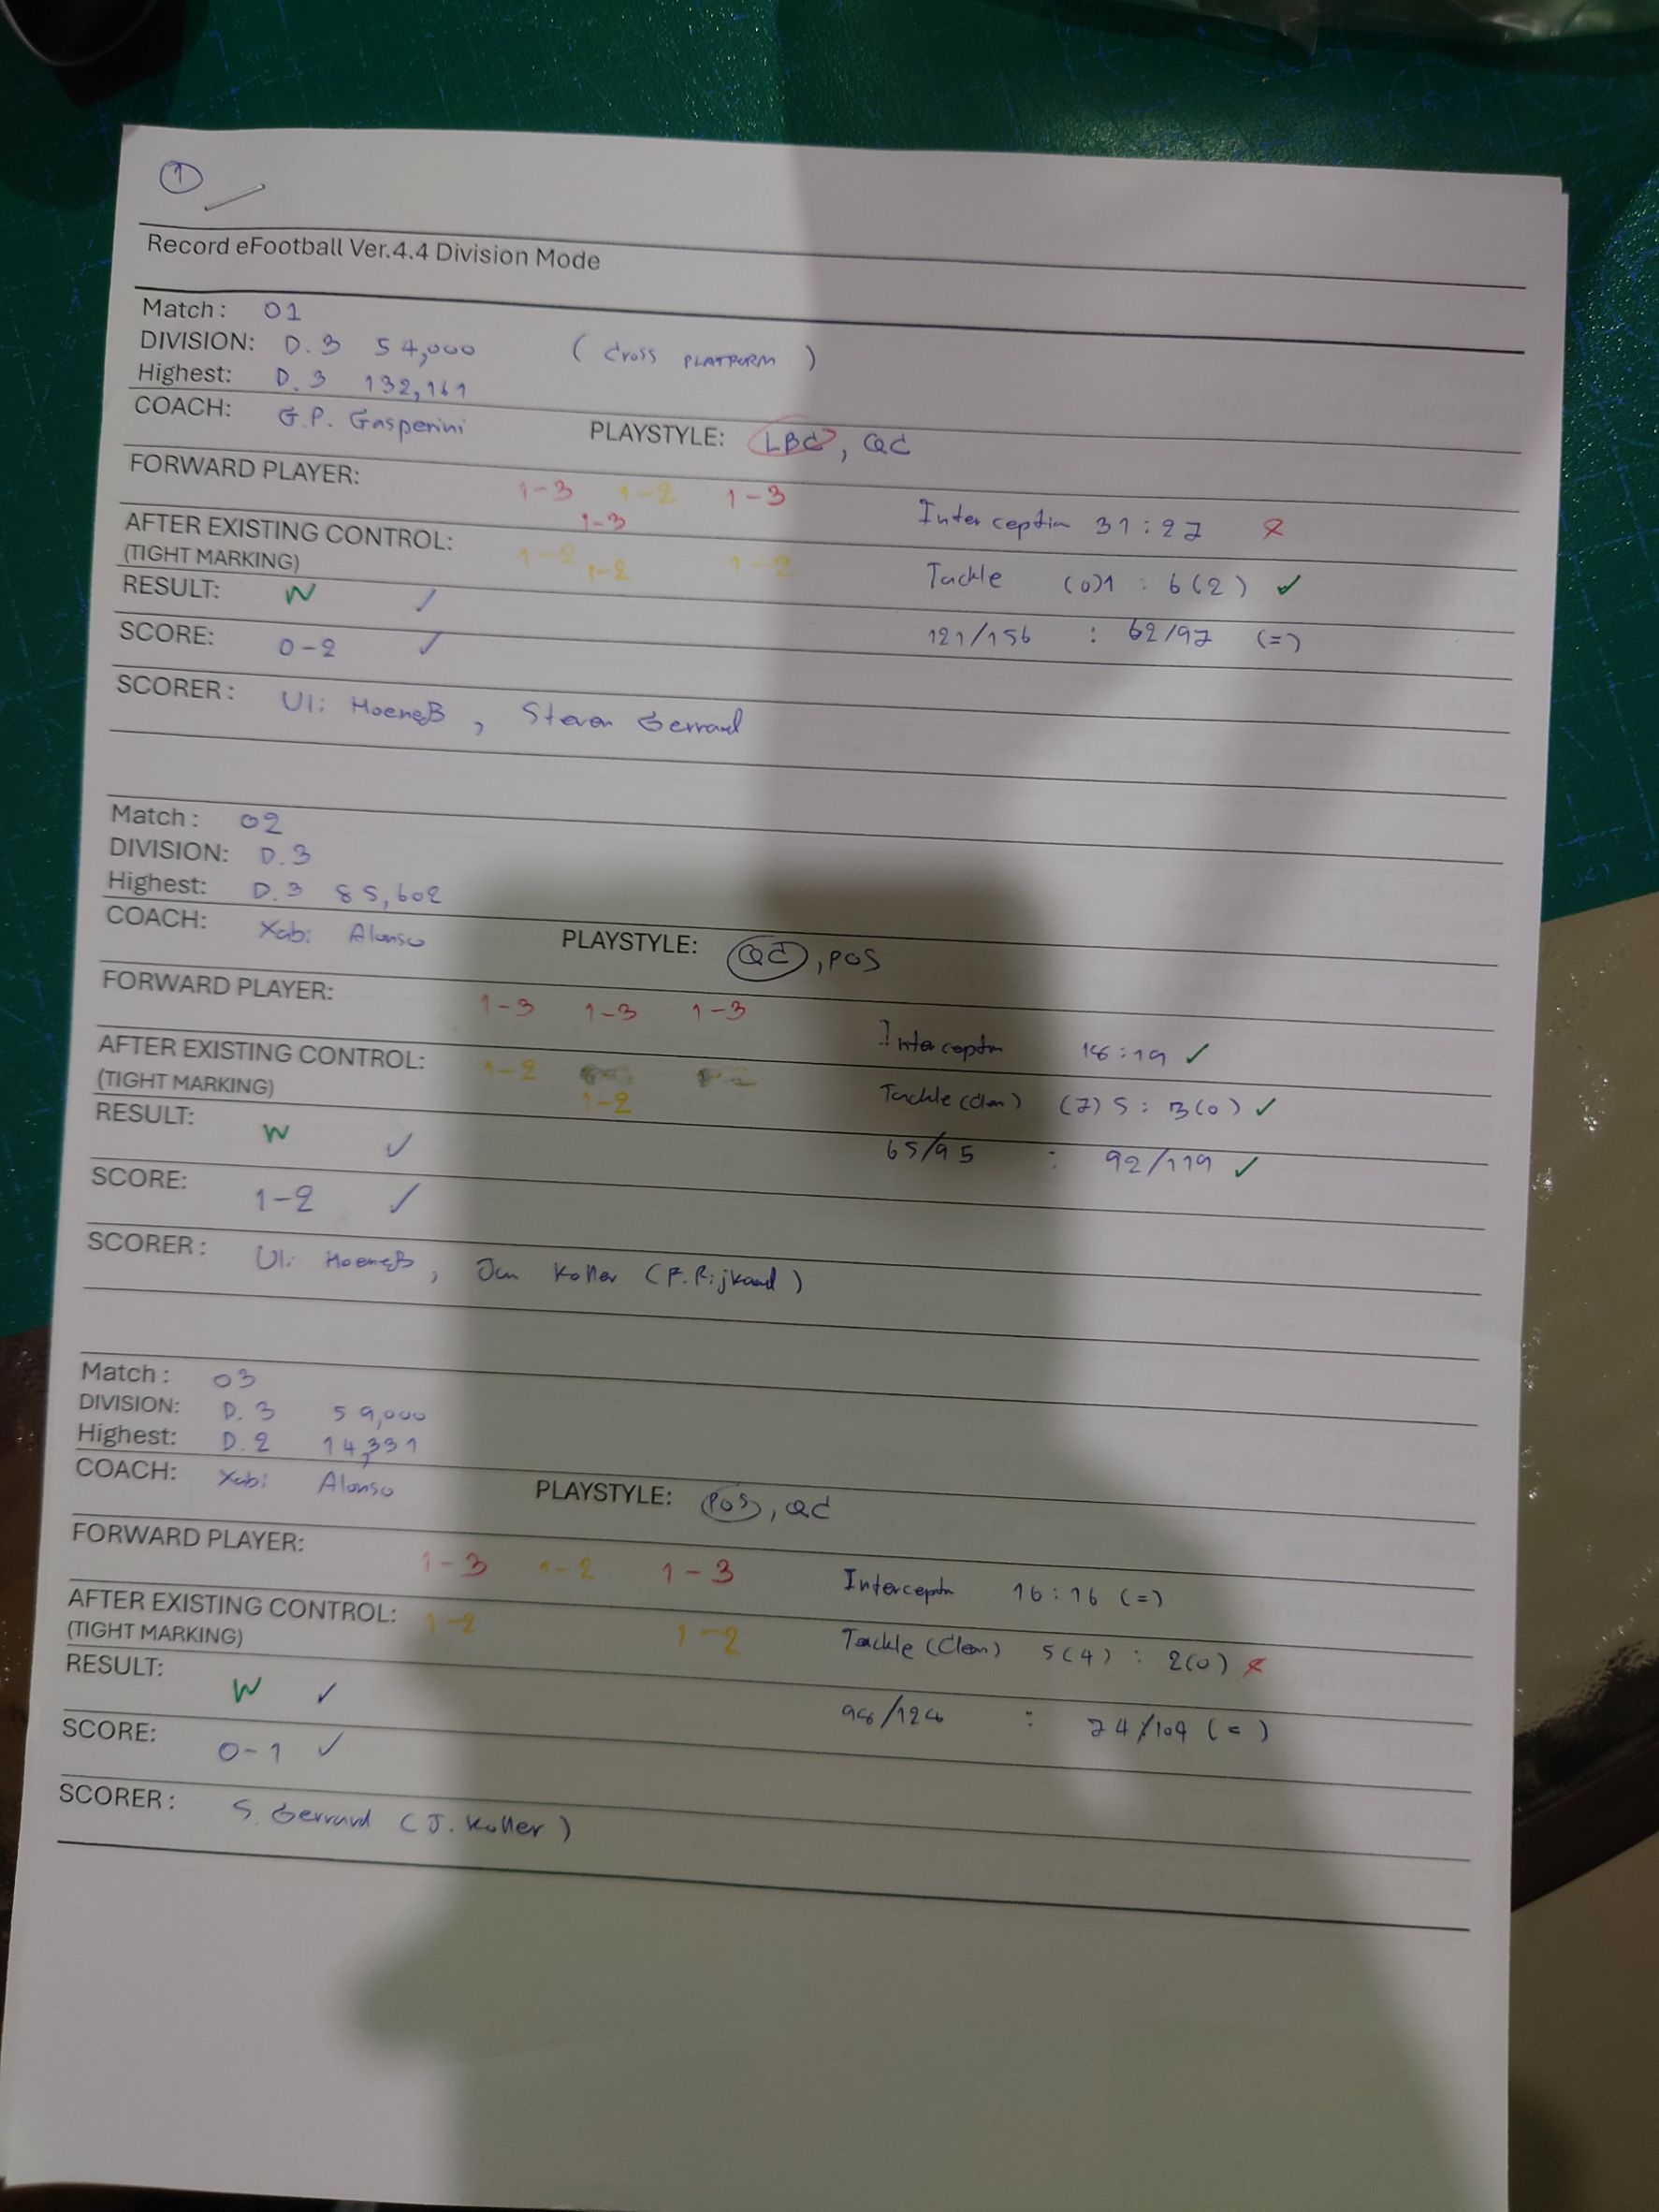 1
Record eFootball Ver.4.4 Division Mode
Match : 01
DIVISION: D.3 54,000 (Cross PLATFORM)
Highest: D.3 132,161
COACH: G.P. Gasperini PLAYSTYLE: LBC, QC
FORWARD PLAYER: 1-3 1-2 1-3
1-3
Interception 31:27 x
AFTER EXISTING CONTROL: 1-2 1-2 1-2
(TIGHT MARKING)
Tackle (0)1 : 6(2) ✓
RESULT: W ✓
121/156 : 62/97 (=)
SCORE: 0-2 ✓
SCORER : Uli Hoeneß, Steven Gerrard
Match : 02
DIVISION: D.3
Highest: D.3 85,602
COACH: Xabi Alonso PLAYSTYLE: QC, POS
FORWARD PLAYER: 1-3 1-3 1-3
Interceptn 18:19 ✓
AFTER EXISTING CONTROL: 1-2
(TIGHT MARKING) 1-2
Tackle (Clen) (7) 5 : 3(0) ✓
RESULT: W ✓
65/95 : 92/119 ✓
SCORE: 1-2 ✓
SCORER : Uli Hoeneß, Jan Koller (F. Rijkaard)
Match : 03
DIVISION: D.3 59,000
Highest: D.2 14,331
COACH: Xabi Alonso PLAYSTYLE: POS, QC
FORWARD PLAYER: 1-3 1-2 1-3
Interceptn 16:16 (=)
AFTER EXISTING CONTROL: 1-2 1-2
(TIGHT MARKING)
Tackle (Clen) 5(4) : 2(0) x
RESULT: W ✓
: 74/104 (=)
SCORE: 0-1 ✓
SCORER : S. Gerrard (J. Koller)